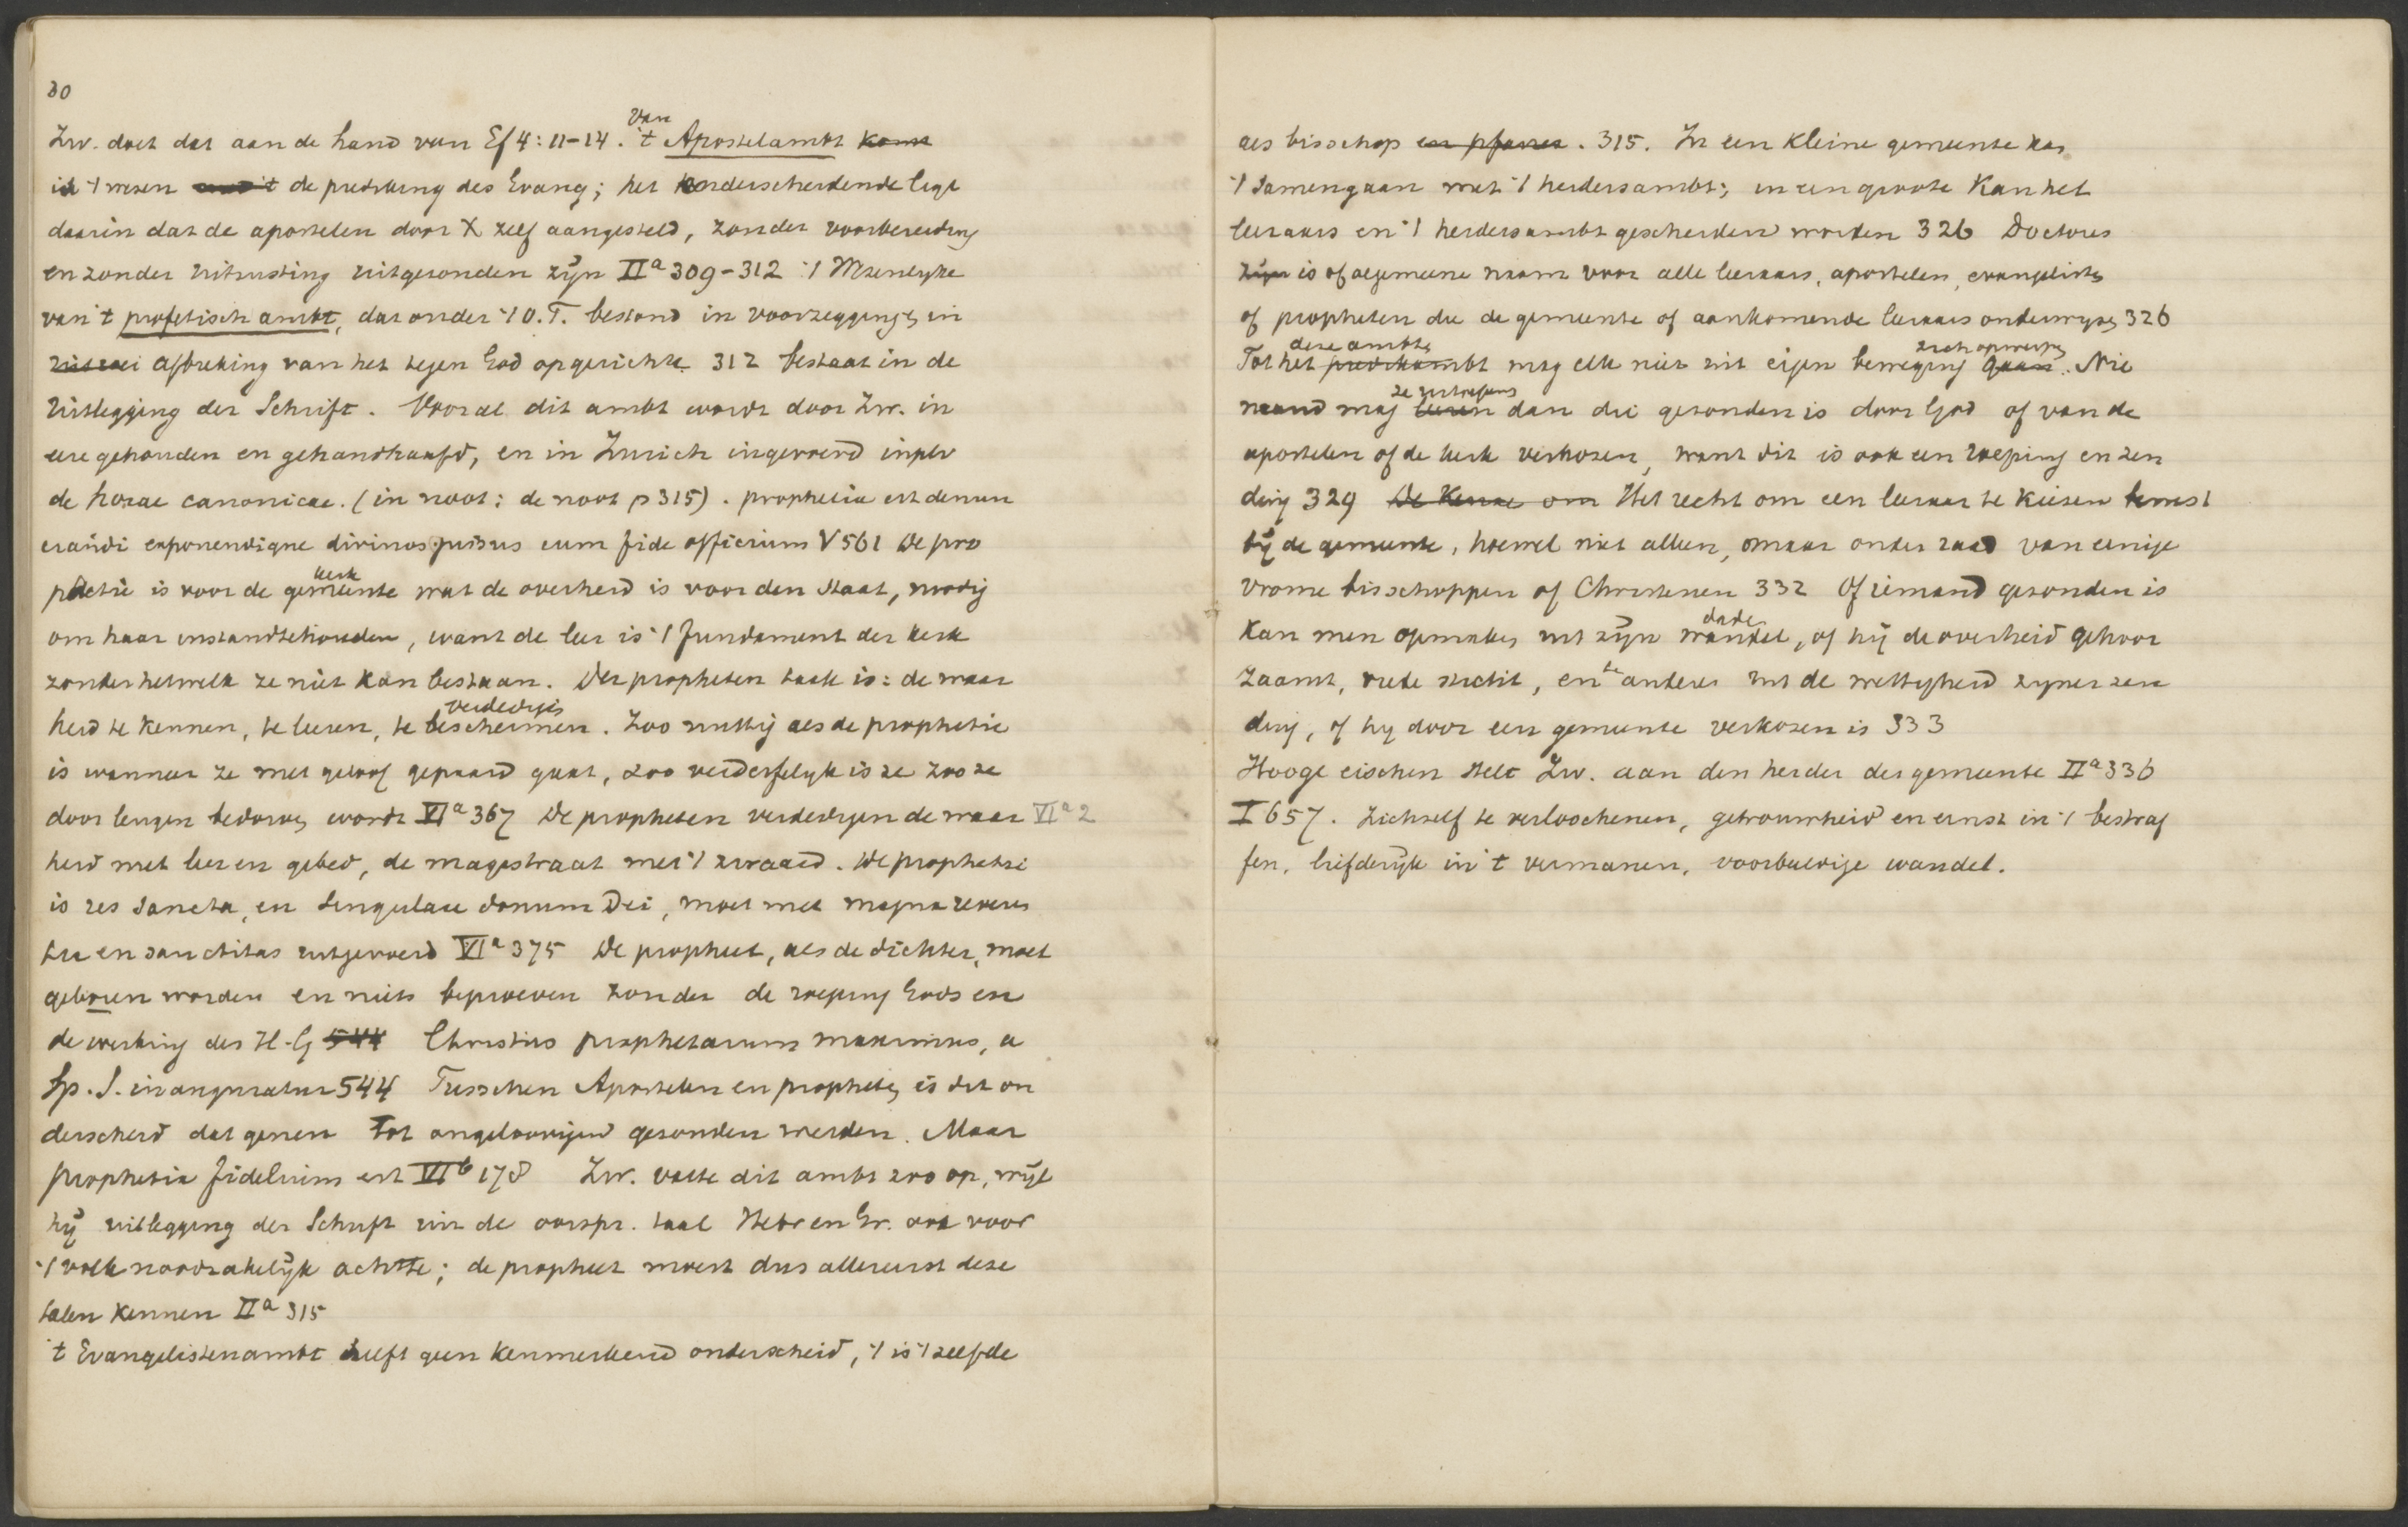 30
Zw. doet dat aan de hand van Ef 4:11-14. Van 't Apostelambt komt
is 't wesen de prediking des Evang; het onderscheidende ligt
daarin dat de apostelen door X zelf aangesteld, zonder voorbereiding
en zonder uitrusting uitgesonden zijn IIa 309-312 't Wesenlyke
van 't profetisch ambt, dat onder 't O.T. bestond in voorzegging, in
afbreking van het tegen God opgerichte 312 bestaat in de
uitlegging der Schrift. Vooral dit ambt wordt door Zw. in
eere gehouden en gehandhaafd, en in Zurich ingevoerd inplv
de horae canonicae. (in noot: de noot p 315). prophetia est denun
ciandi exponendique divinos jussus cum fide officium V 561 De pro
phetie is voor de gemeente kerk wat de overheid is voor den Staat, noodig
om haar instandtehouden, want de leer is 't fundament der kerk
zonder hetwelk ze niet kan bestaan. Der propheten taak is: de waar
heid te kennen, te leeren, te beschermen verdedigen. Zoo nuttig als de prophetie
is wanneer ze met geloof gepaard gaat, zoo verderfelyk is ze zoo ze
door leugen bedorven wordt VIa 367 De propheten verdedigen de waar VIa 2
heid met leer en gebed, de magestraat met 't zwaard. De prophetie
is res sancta, en singulare donum Dei, moet met magna reveren
tia en sanctitas uitgevoerd VIa 375 De propheet, als de dichter, moet
geboren worden en niets beproeven zonder de roeping Gods en
de werking des H.G 544 Christus prophetarum maximus, a
Sp. S. inauguratur 544 Tusschen Apostelen en propheten is dit on
derscheid dat genen tot ongeloovigen gesonden werden. Maar
prophetia fidelium est VIb 178 Zw. vatte dit ambt zoo op, wijl
hij uitlegging der Schrift uit de oorspr. taal Hebr en Gr. ook voor
't volk noodzakelijk achtte; de propheet moest dus allereerst deze
talen kennen IIa 315
't Evangelistenambt heeft geen kenmerkend onderscheid, 't is 't zelfde
als bisschop en pfarrer. 315. In een kleine gemeente kan
't samengaan met 't herdersambt; in een groote kan het
leeraars en 't herdersambt gescheiden worden 326 Doctores
zijn is of algemeene naam voor alle leeraars, apostelen, evangelisten
of propheten die de gemeente of aankomende leeraars onderwyzen 326
Tot het predikambt deze ambten mag elk niet uit eigen beweging gaan zich opwerpen. Nie
mand mag leeren ze uitoefenen dan die gesonden is door God of van de
apostelen of de kerk verkosen, want dit is ook een roeping en zen
ding 329 De Keuze om Het recht om een leeraar te kiesen berust
bij de gemeente, hoewel niet alleen, maar onder raad van eenige
vrome bisschoppen of Christenen 332 Of iemand gesonden is
kan men opmaken uit zijn wandel daden, of hij de overheid gehoor
zaamt, vrede sticht, en te anderen uit de wettigheid zyner zen
ding, of hy door een gemeente verkosen is 333
Hooge eischen stelt Zw. aan den herder der gemeente IIa 336
I 657. Zichself te verloochenen, getrouwheid en ernst in 't bestraf
fen, liefderijk in 't vermanen, voorbeeldige wandel.